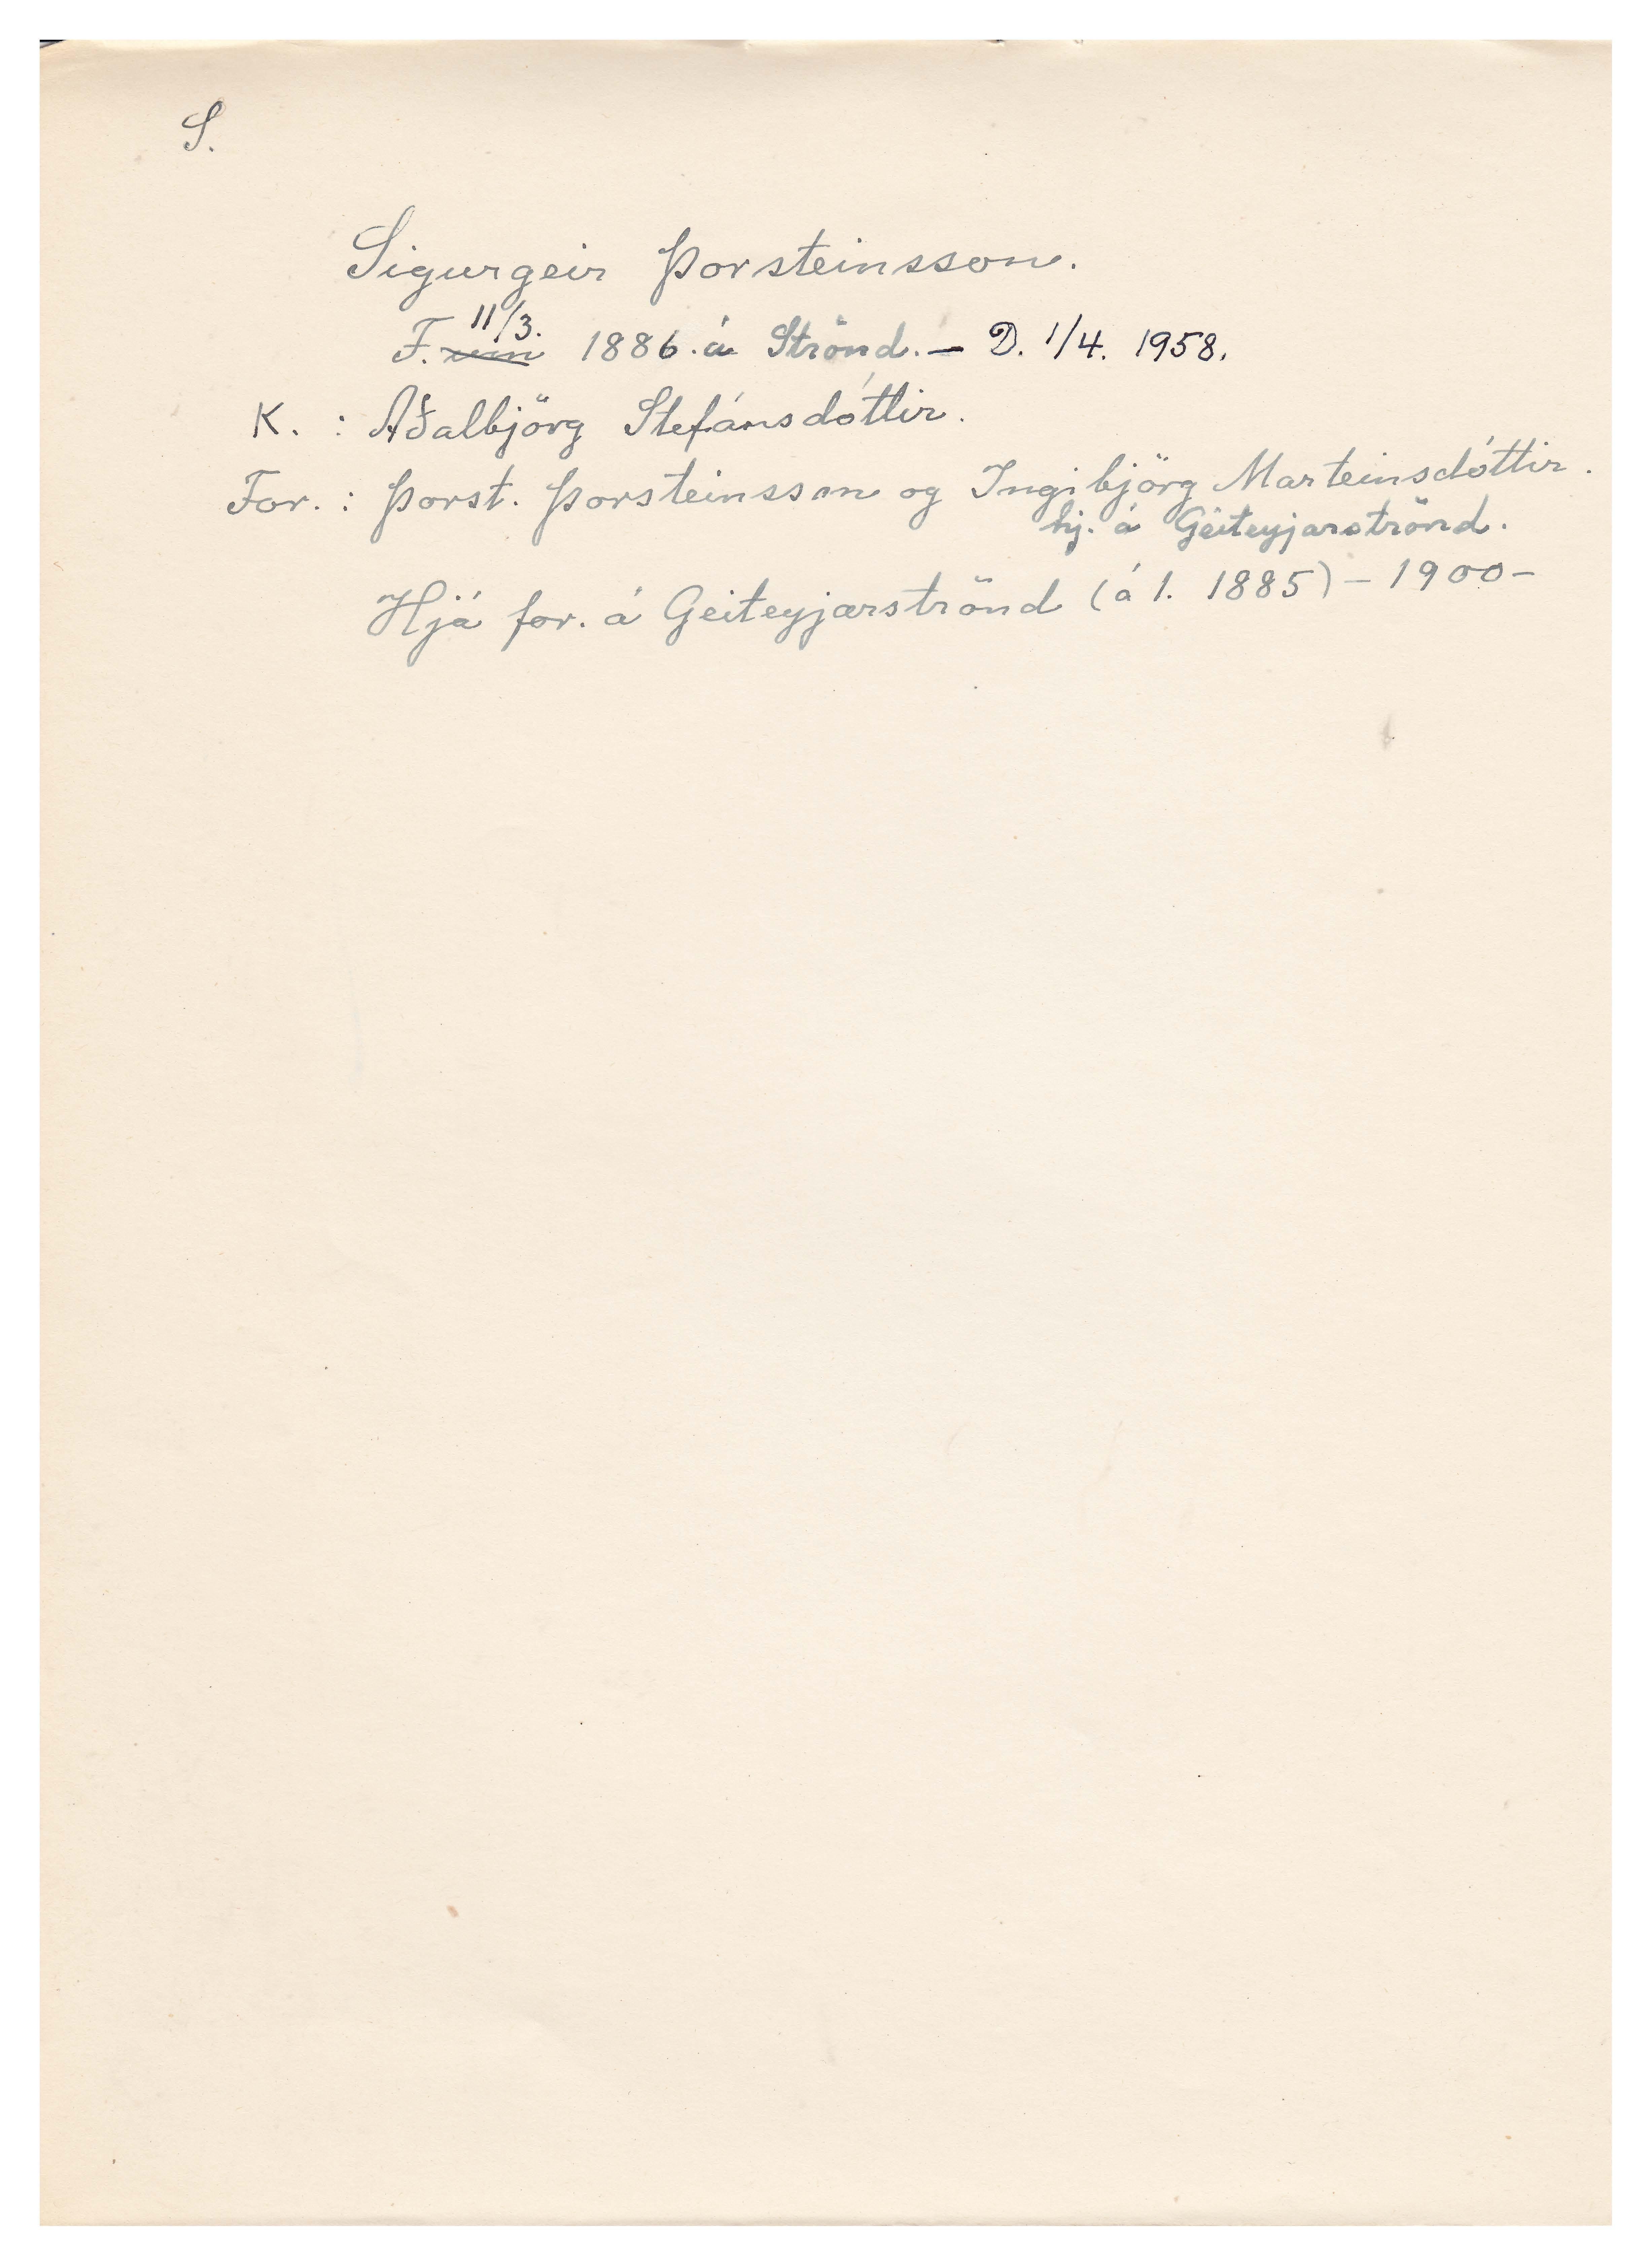 S.
Sigurgeir Þorsteinsson.
F. 11/3. um 1886. á Strönd. – D. 1/4. 1958.
K. : Aðalbjörg Stefánsdóttir.
For. : Þorst. Þorsteinsson og Ingibjörg Marteinsdóttir.
hj. á Geiteyjarströnd.
Hjá for. á Geiteyjarströnd (á l. 1885) – 1900 –